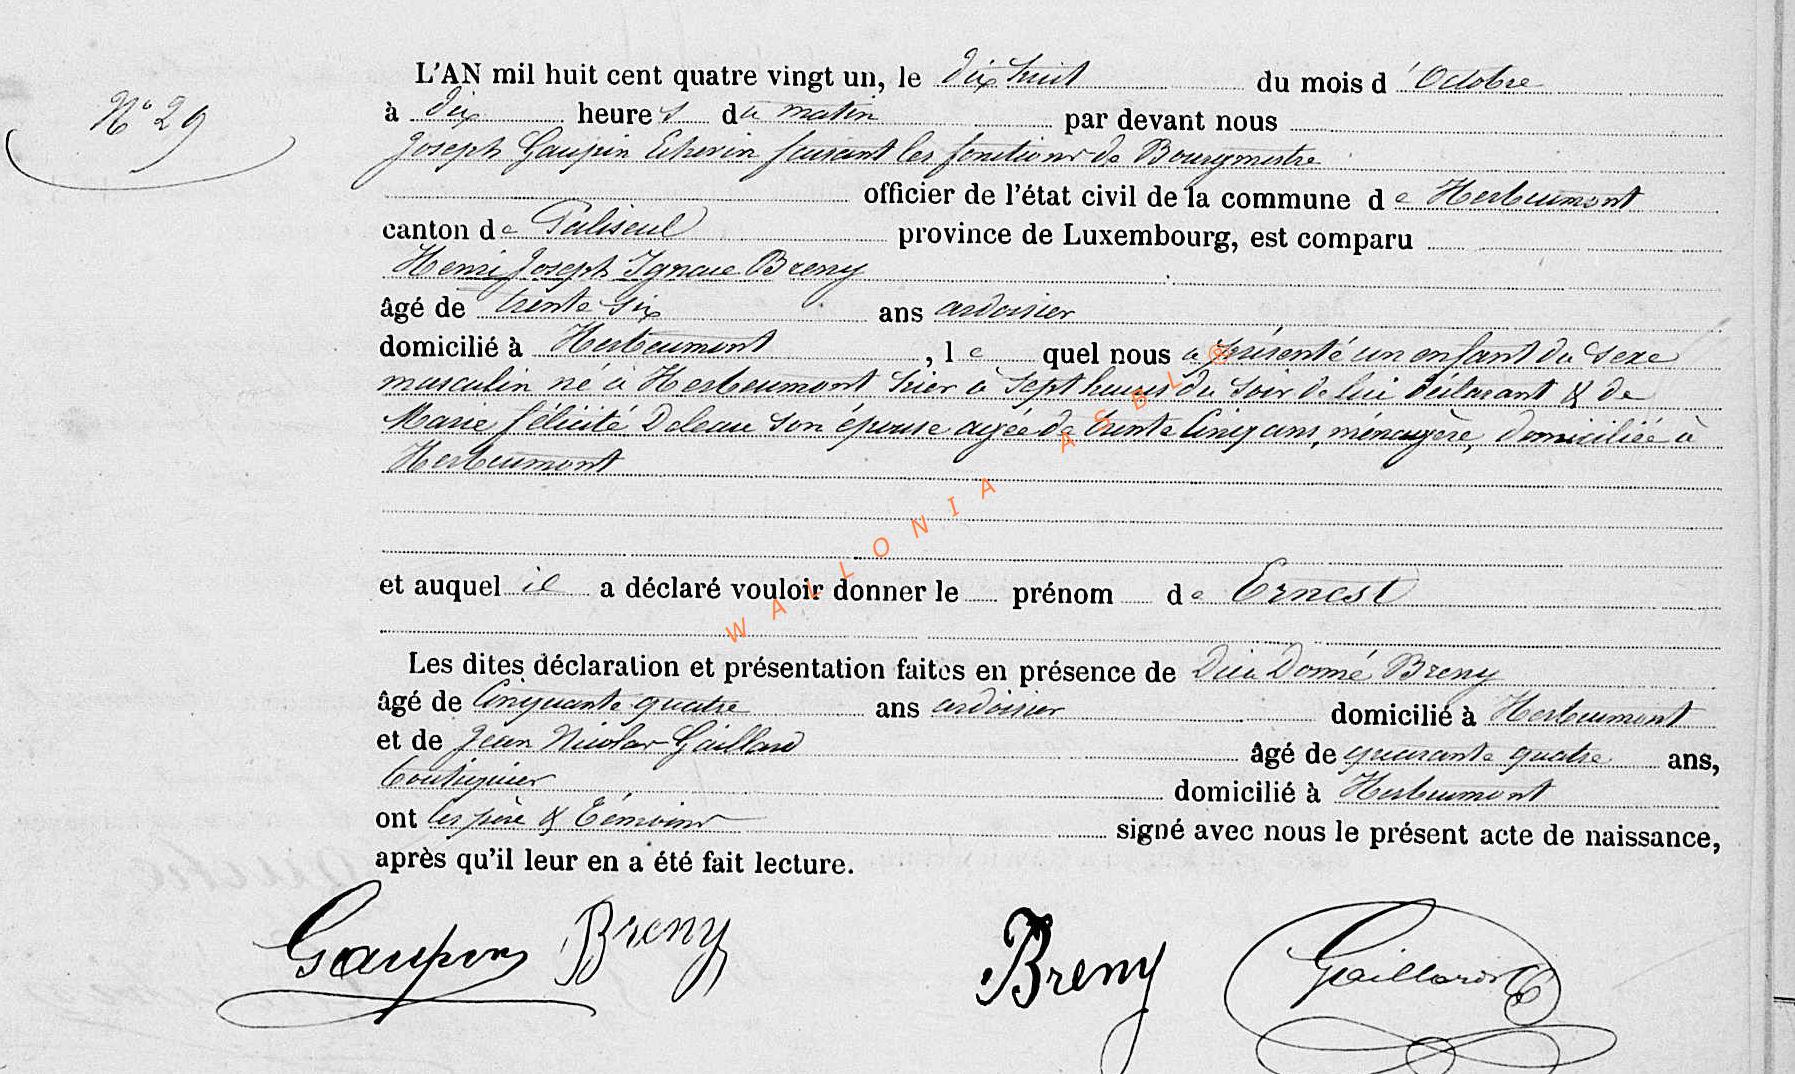 N° 29
L'AN mil huit cent quatre vingt un, le dix huit du mois d'Octobre
à dix heures du matin par devant nous
Joseph Gaupin Echevin faisant les fonctions de Bourgmestre
officier de l'état civil de la commune de Herbeumont
canton de Paliseul province de Luxembourg, est comparu
Henri Joseph Ignace Breny
âgé de trente six ans ardoisier
domicilié à Herbeumont, lequel nous a présenté un enfant du sexe
masculin né à Herbeumont hier à sept heures du soir de lui déclarant & de
Marie Félicité Deleau son épouse agée de trente cinq ans, ménagère, domiciliée à
Herbeumont
et auquel il a déclaré vouloir donner le prénom de Ernest
Les dites déclaration et présentation faites en présence de Dieu Donné Breny
âgé de Cinquante quatre ans ardoisier domicilié à Herbeumont
et de Jean Nicolas Gaillard âgé de quarante quatre ans,
boutiquier domicilié à Herbeumont
ont les père & témoins signé avec nous le présent acte de naissance,
après qu'il leur en a été fait lecture.
Gaupin Breny Breny Gaillard
WALLONIA ASBL ©